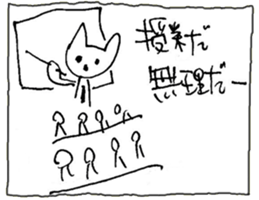 授業だ
無理だー